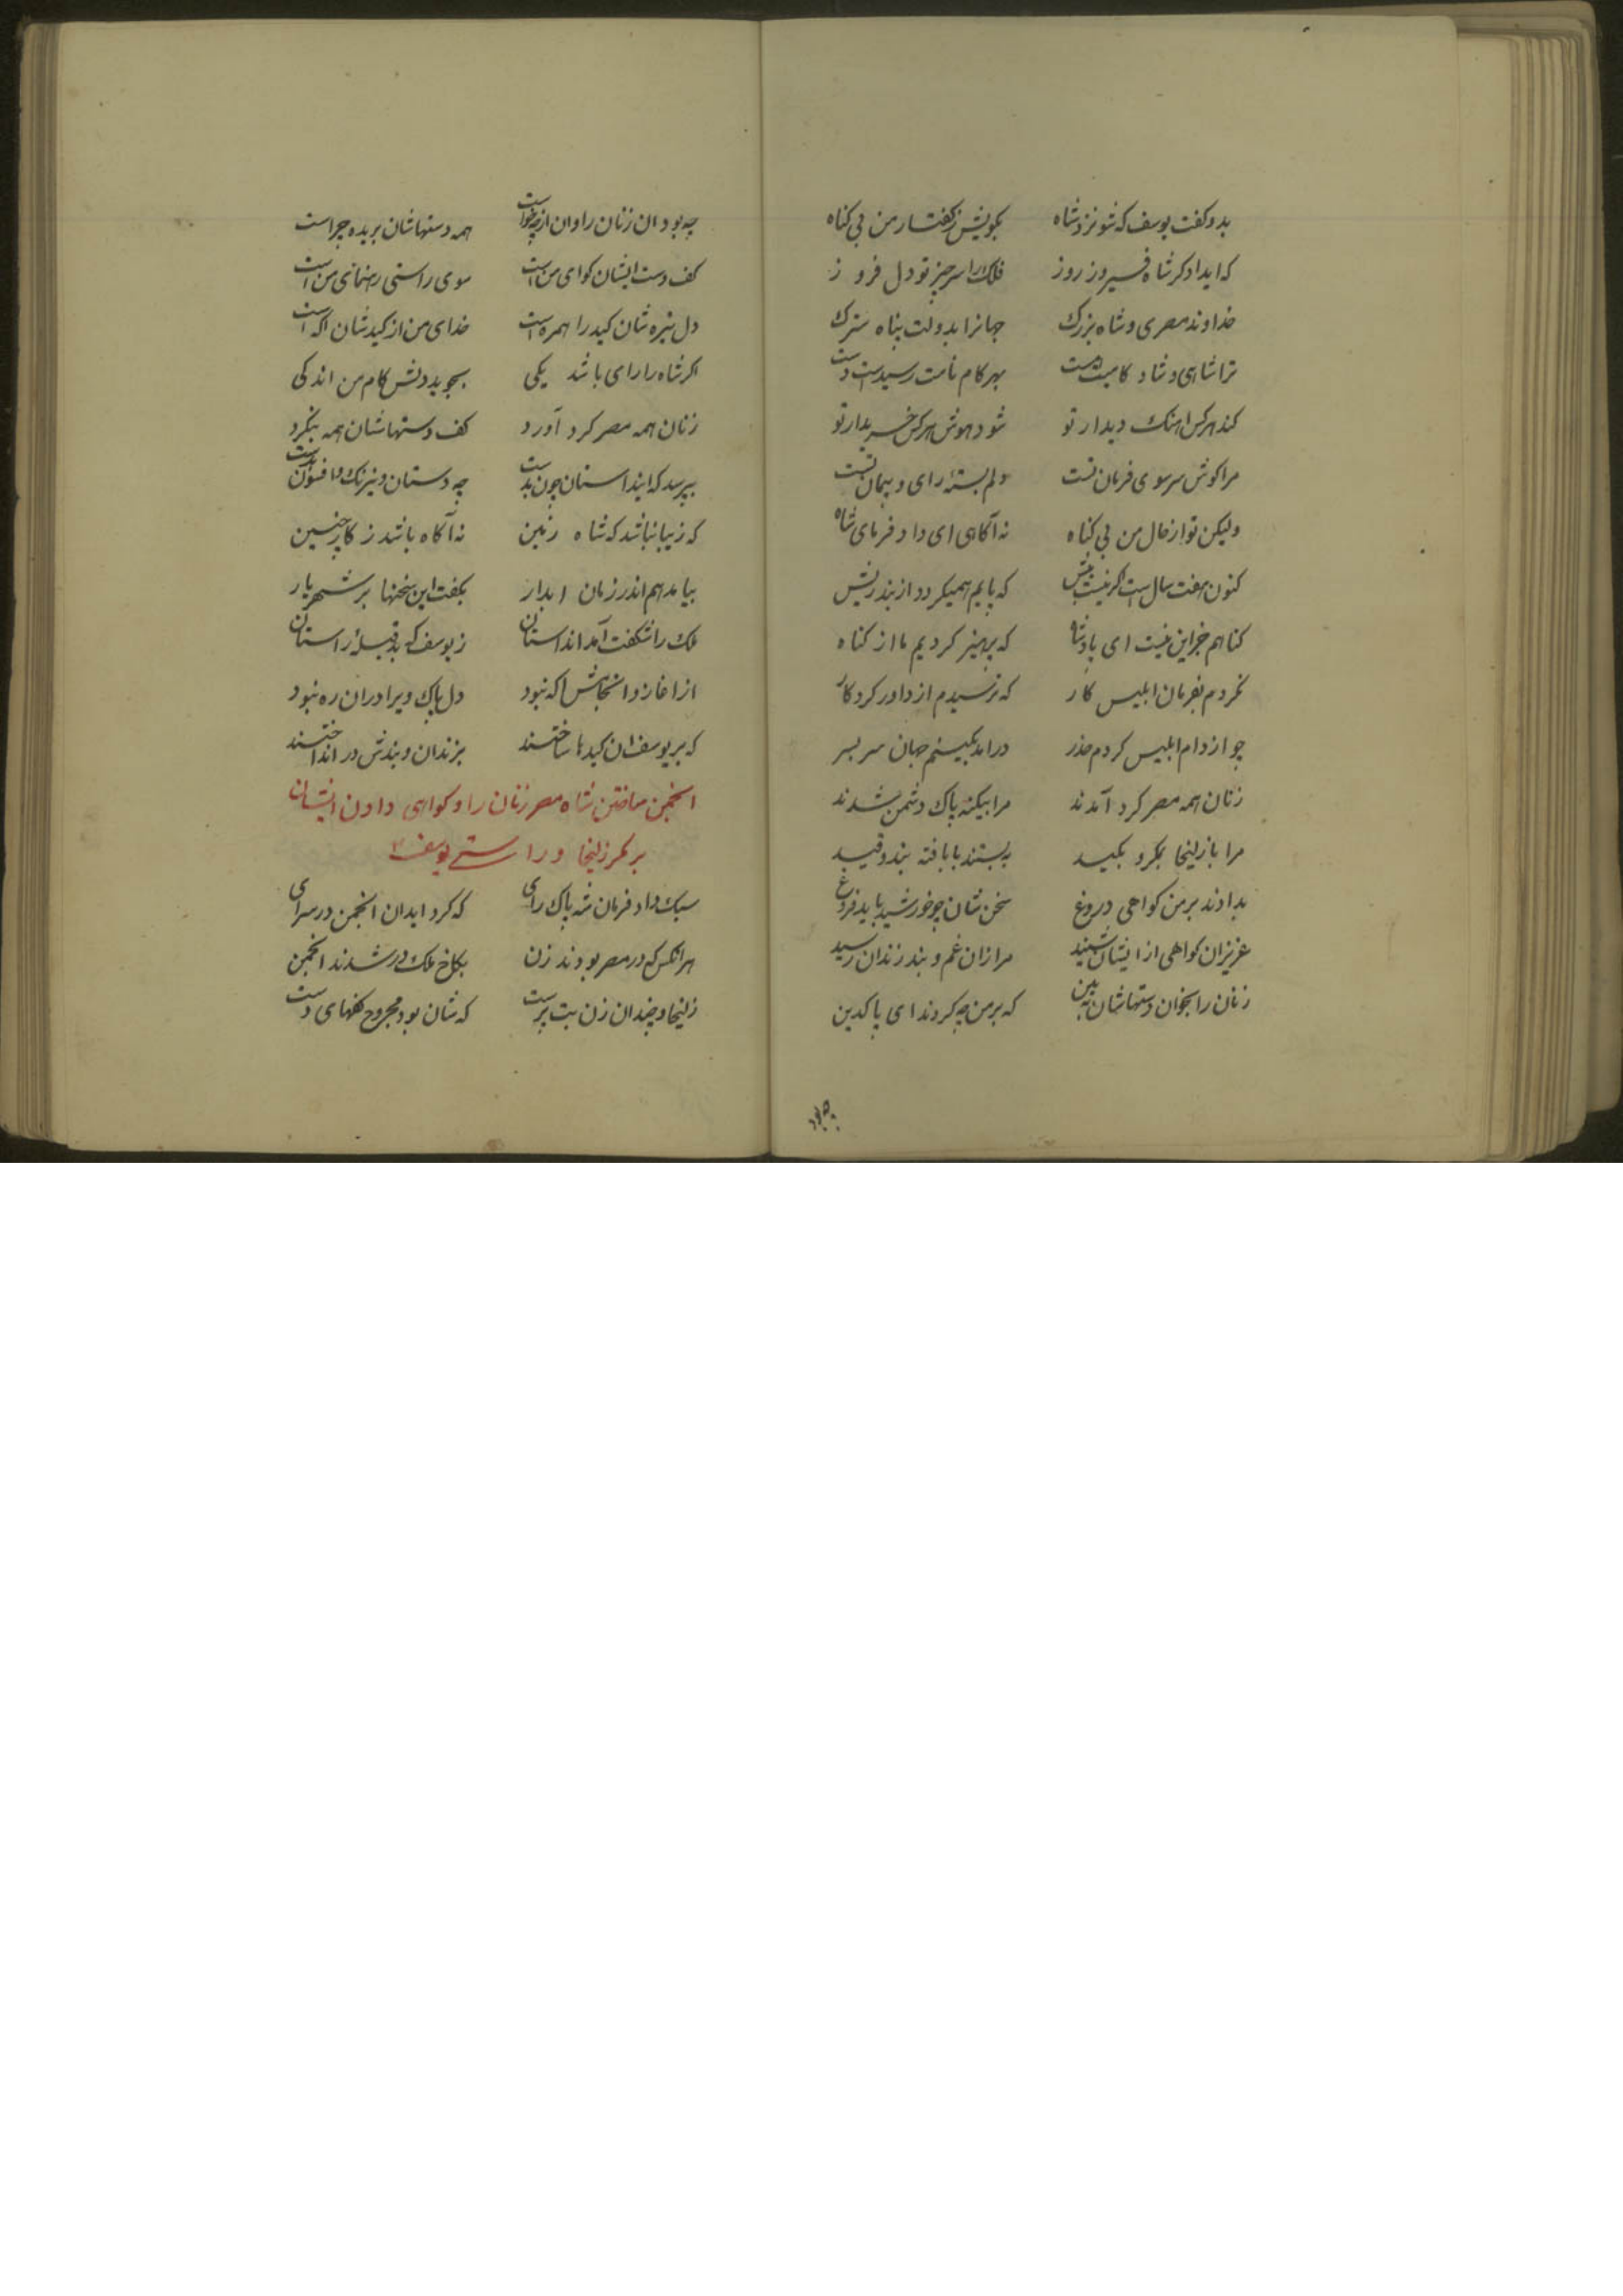 بدو گفت یوسف که شو نزد شاه بگویش ز گفتار من بی کناه
که ای دادکر شاه فیروز روز فلک را سر چیز تو دل فروز
خداوند مصری و شاه بزرک جهانرا بدولت پناه سترک
ترا شاهی و شاد کامیت هست بهر کام تامت رسیدست دست
کند هرکس اهنک دیدار تو شود هوش هرکس خریدار تو
مرا کوش سر سوی فرمان تست دلم بستهٔ رای و پیمان تست
ولیکن تو از حال من بی کناه نه آکاهی ای داد فرمای شاه
کنون هفت سال است کر نیست بیش که پایم همیکردد از بند ریش
کناهم جز این نیست ای پادشاه که پرهیز کردیم ما از کناه
نکردم بفرمان ابلیس کار که ترسیدم از داور کردکار
چو از دام ابلیس کردم حذر درامد بکینم جهان سر بسر
زنان همه مصر کرد آمدند مرا بیکنه پاک دشمن شدند
مرا با زلیخا بکرد بکید ببستند با بافته بند و قید
بدادند بر من کواهی دروغ سخن شان چو خورشید باید فروغ
عزیزان کواهی از ایشان شنید مرا زان غم و بند زندان رسید
زنان را بخوان دستهاشان ببین که بر من چه کردند ای پاکدین
چه بود ان زنان را و ان از چه خواست همه دستهاشان بریده چراست
کف دست ایشان کوای من است سوی راستی رهنمای من است
دل تیره شان کید را همره است خدای من از کیدشان اکه است
اکر شاه را رای باشد یکی بجوید دلش کام من اندکی
زنان همه مصر کرد آورد کف دستهاشان همه بنکرد
بپرسد که این داستان چون بدست چه دستان و نیرنک و افسون بدست
که زیبا نباشد که شاه زمین نه آکاه باشد ز کار چنین
بیامد هم اندر زمان ابدار بکفت این سخنها بر شهریار
ملک را شکفت آمد ان داستان ز یوسف که بد قبلهٔ راستان
از اغاز و انجامش اکه نبود دل پاک ویرا دران ره نبود
که بر یوسف ان کیدها ساختند بزندان و بندش در انداختند
انجمن ساختن شاه مصر زنان را و کواهی دادن ایشان
بر مکر زلیخا و راستی یوسف
سبک داد فرمان شه پاک رای که کرد اید ان انجمن در سرای
هرانکس که در مصر بودند زن بکاخ ملک در شدند انجمن
زلیخا و چندان زن بت پرست که شان بود مجروح کفهای دست